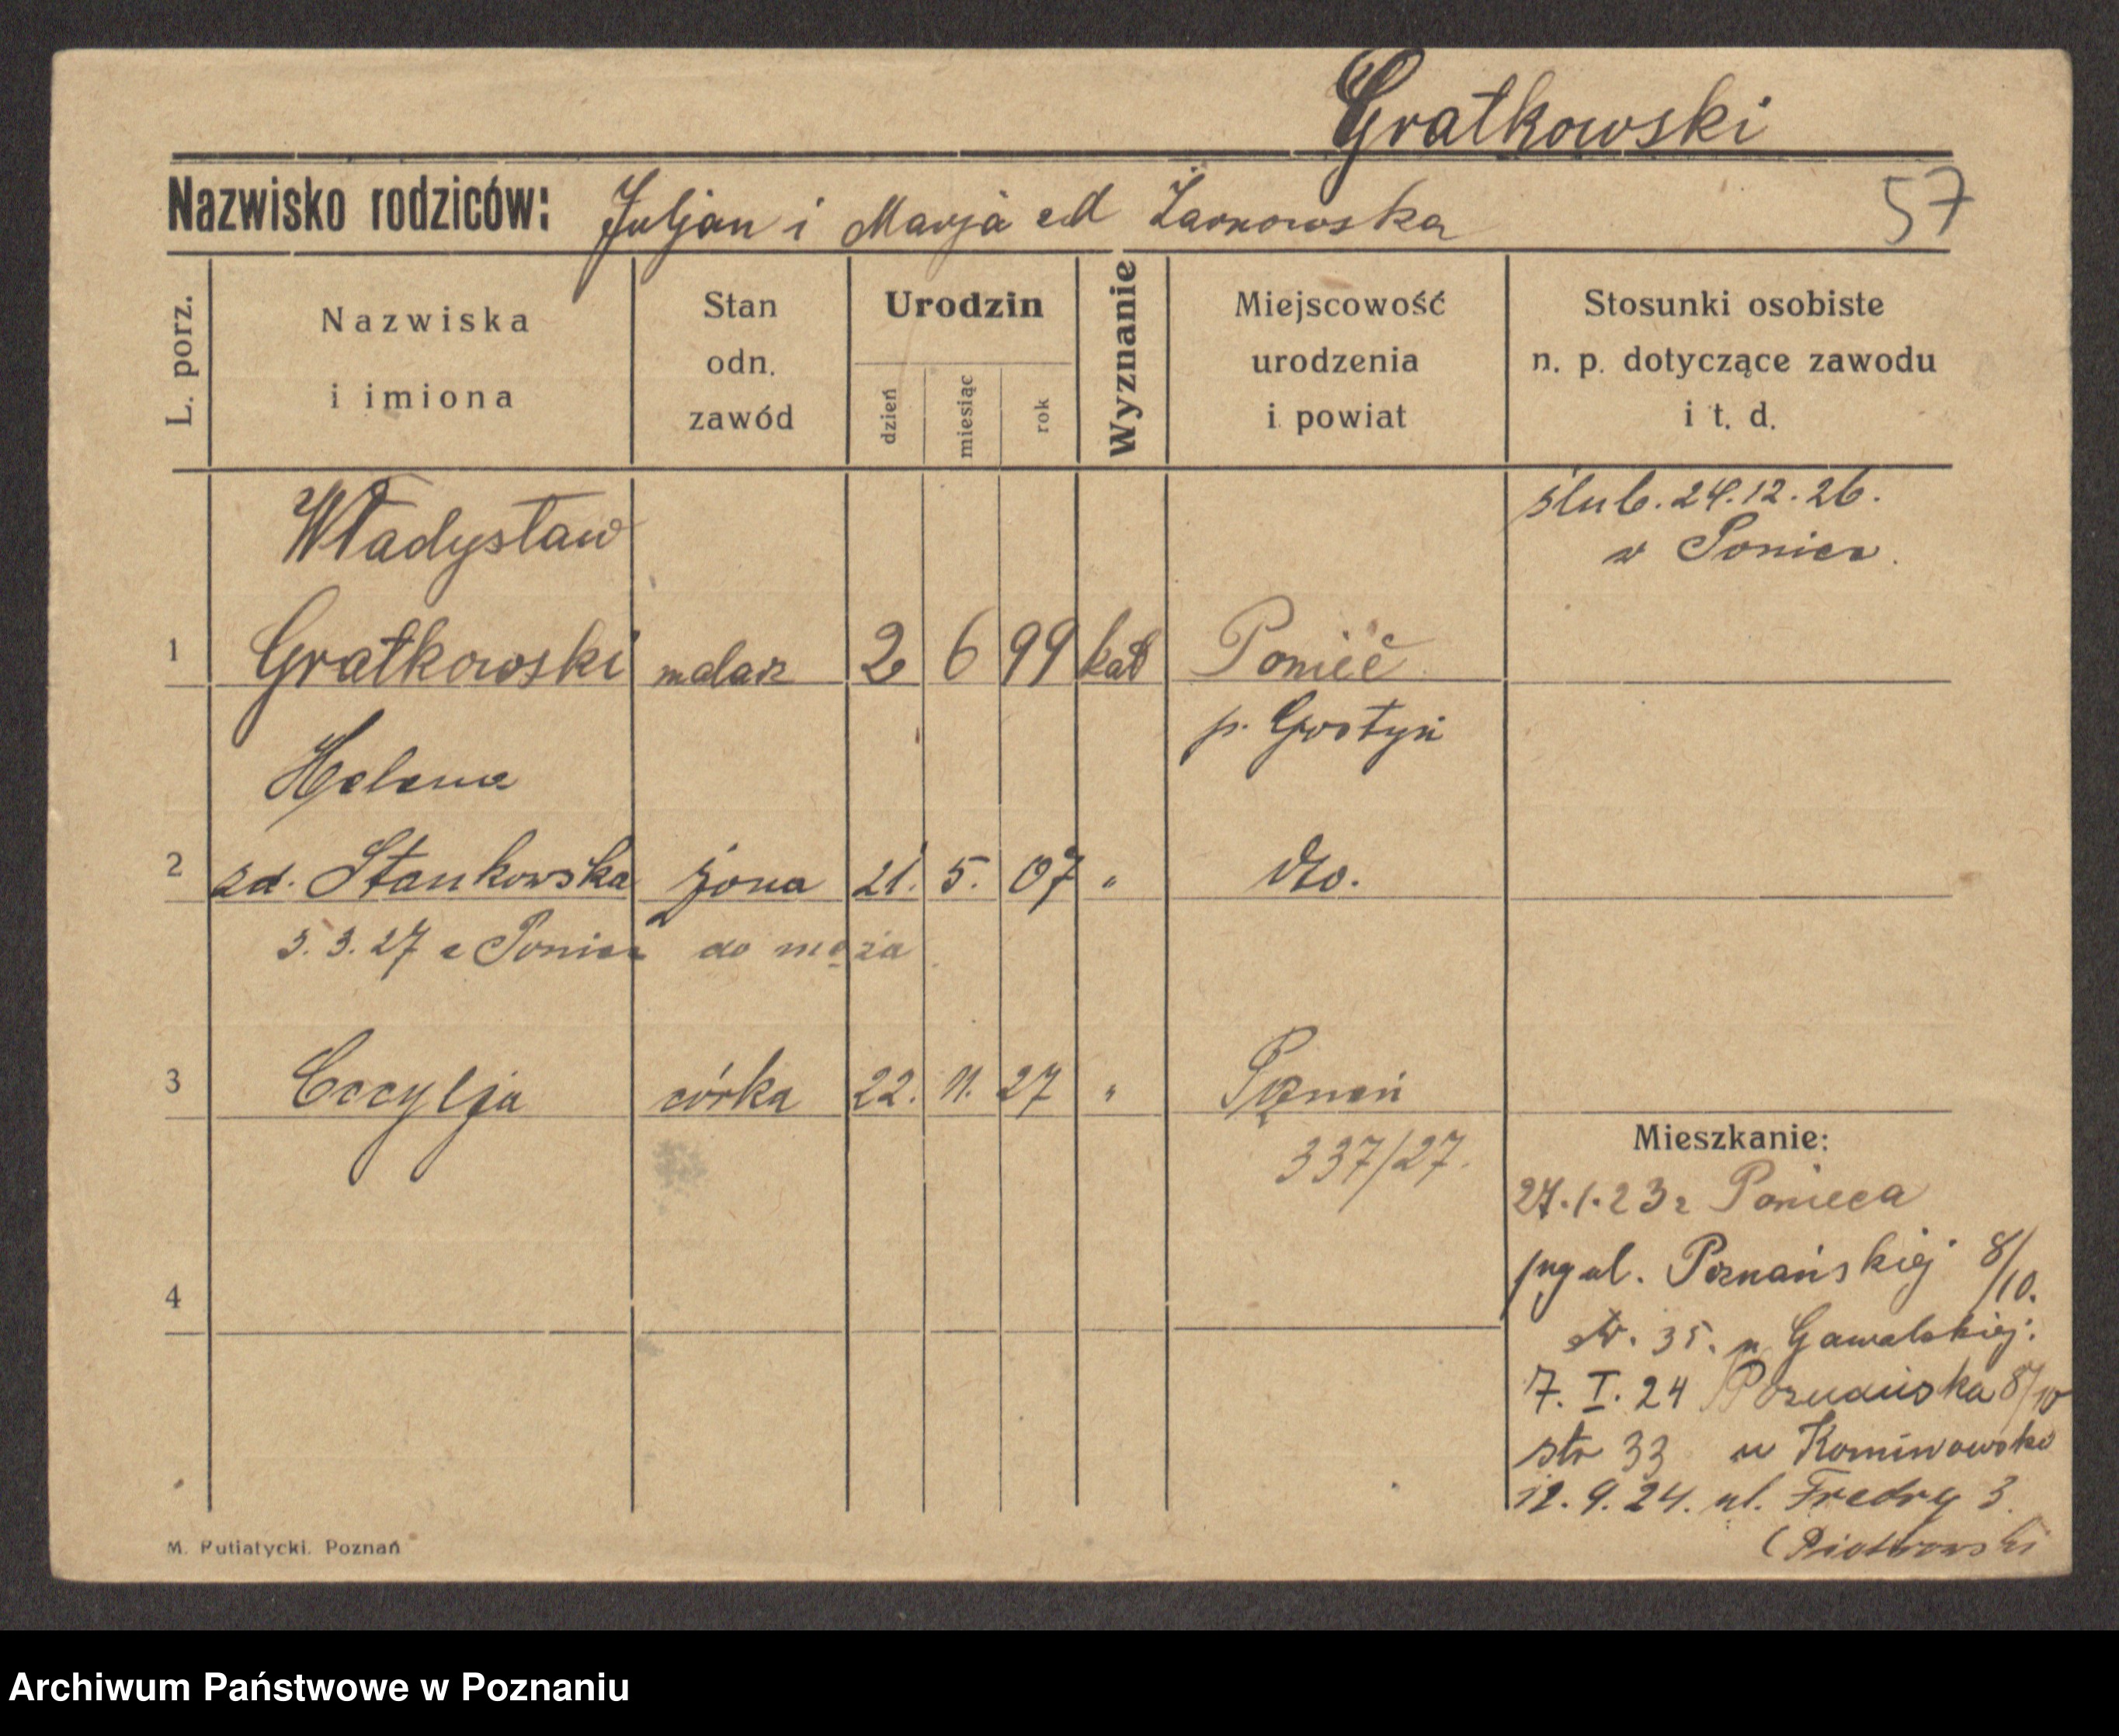 Gratkowski
Nazwisko rodziców: Juljan i Marja zd Żarnowska
57
L. porz.
Nazwiska
i imiona
Stan
odn.
zawód
Urodzin
dzień
miesiąc
rok
Wyznanie
Miejscowość
urodzenia
i powiat
Stosunki osobiste
n. p. dotyczące zawodu
i t. d.
ślub. 24.12.26.
w Poniec.
Władysław
1 Gratkowski malarz 2 6 99 kat Poniec
p. Gostyń
Helena
2 zd. Stankowska żona 21. 5. 07 " dto.
3.3.27 z Poniec do męża
3 Cecylja córka 22. 11. 27 " Poznań
337/27.
Mieszkanie:
27.1.23 z Ponieca
ul. Poznańskiej 8/10.
4
35. u
7. I. 24 Poznańska 8/10
str 33 u
12.9.24. ul. Fredry 3.
(Piotrowski
M. Putiatycki. Poznań
Archiwum Państwowe w Poznaniu